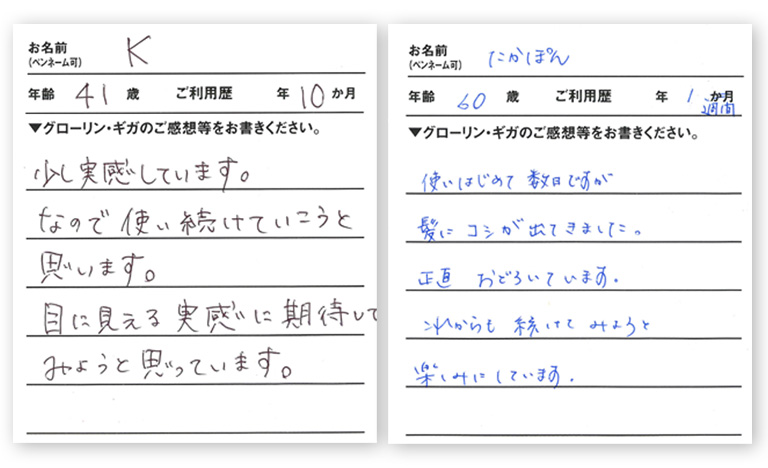 お名前
(ペンネーム可) K
年齢 41 歳 ご利用歴 年 10 か月
▼グローリン・ギガのご感想等をお書きください。
少し実感しています。
なので使い続けていこうと
思います。
目に見える実感に期待して
みようと思っています。
お名前
(ペンネーム可) たかぽん
年齢 60 歳 ご利用歴 年 1 か月
週間
▼グローリン・ギガのご感想等をお書きください。
使いはじめて数日ですが
髪にコシが出てきました。
正直 おどろいています.
これからも続けてみようと
楽しみにしています.